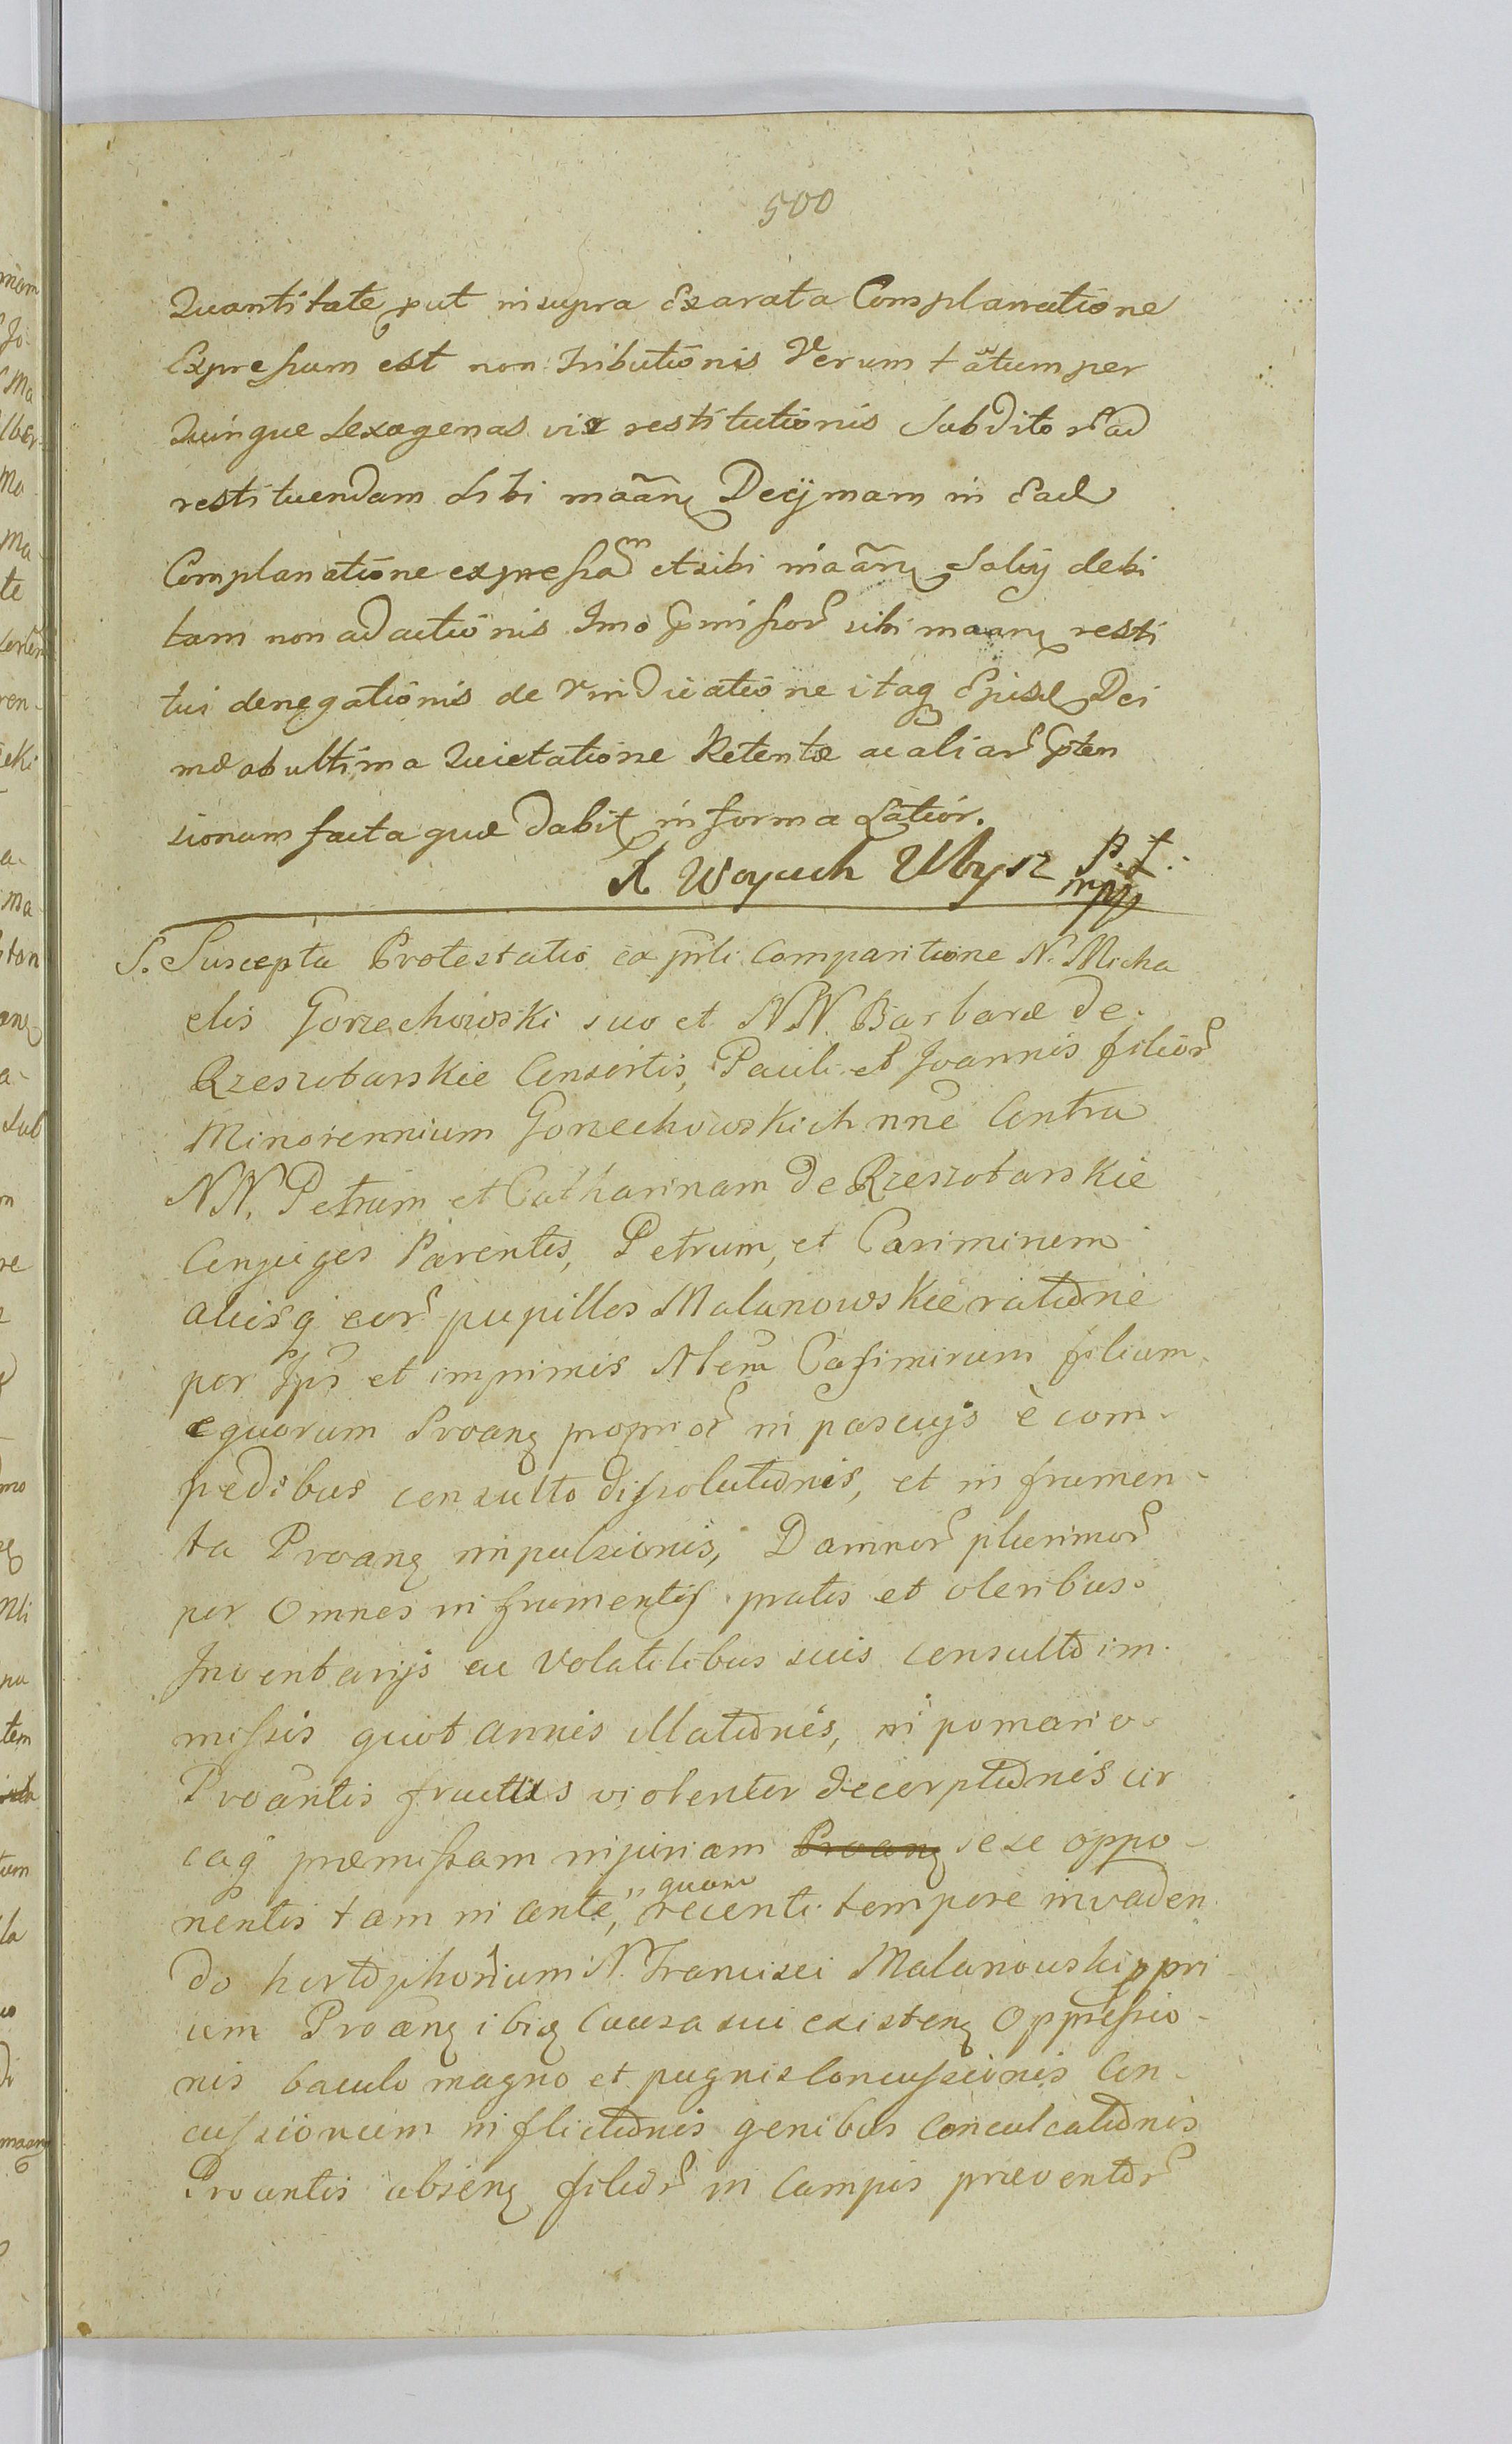 500
Quantitate put in supra Exarata Complanatione
Expressum est non Tributionis Verum tãtum per
Quinque Sexagenas vix restitutionis Subditor ad
restituendam Sibi maãnt Decymam in Ead
Complanatione expressam et sibi maãnt Salvy debi
tam non adactionis Imo pmissor sibi maant resti
tui denegationis de vindicatione itaq Ejusd Dei
mæ ab ultima Quietatione Retentæ ac aliar pten
sionum facta quæ dabit in forma Latior.
X Woyciech Ubysz p.t.
mpp
S. Suscepta Protestatio ex pnli Comparitione N. Micha
elis Gorzechowski suo et NN. Barbaræ de
Rzeszotarskie Consortis, Pauli et Joannis filior
Minorennium Gorzechowskich nne Contra
NN. Petrum et Catharinam de Rzeszotarskie
Conjuges Parentes, Petrum, et
aliosq eor pupillos Malanowskie ratione
per Ips et imprimis Nlem Casimirum filium
equorum Proant propior in pascuys è com-
pedibus consulto dissolutionis, et in frumen-
ta Proant impulsionis, Damnor plurimor
per Omnes in frumentis pratis et oleribus
Inventarys ac Volatilibus suis consulto im-
missis quot annis illationis, in pomario
Proantis fructus violenter decerptionis cir
caq præmissam injuriam Proant sese oppo-
nentis tam in ante, quam recenti tempore invaden
do hortophorium N. Francisci Malanowski ppri
um Proant ibiq Causa sui existent Oppressio-
nis baculo magno et pugnis Concussionis Con-
cussionum inflictionis genibus Conculcationis
Proantis absent filior in Campis præventor